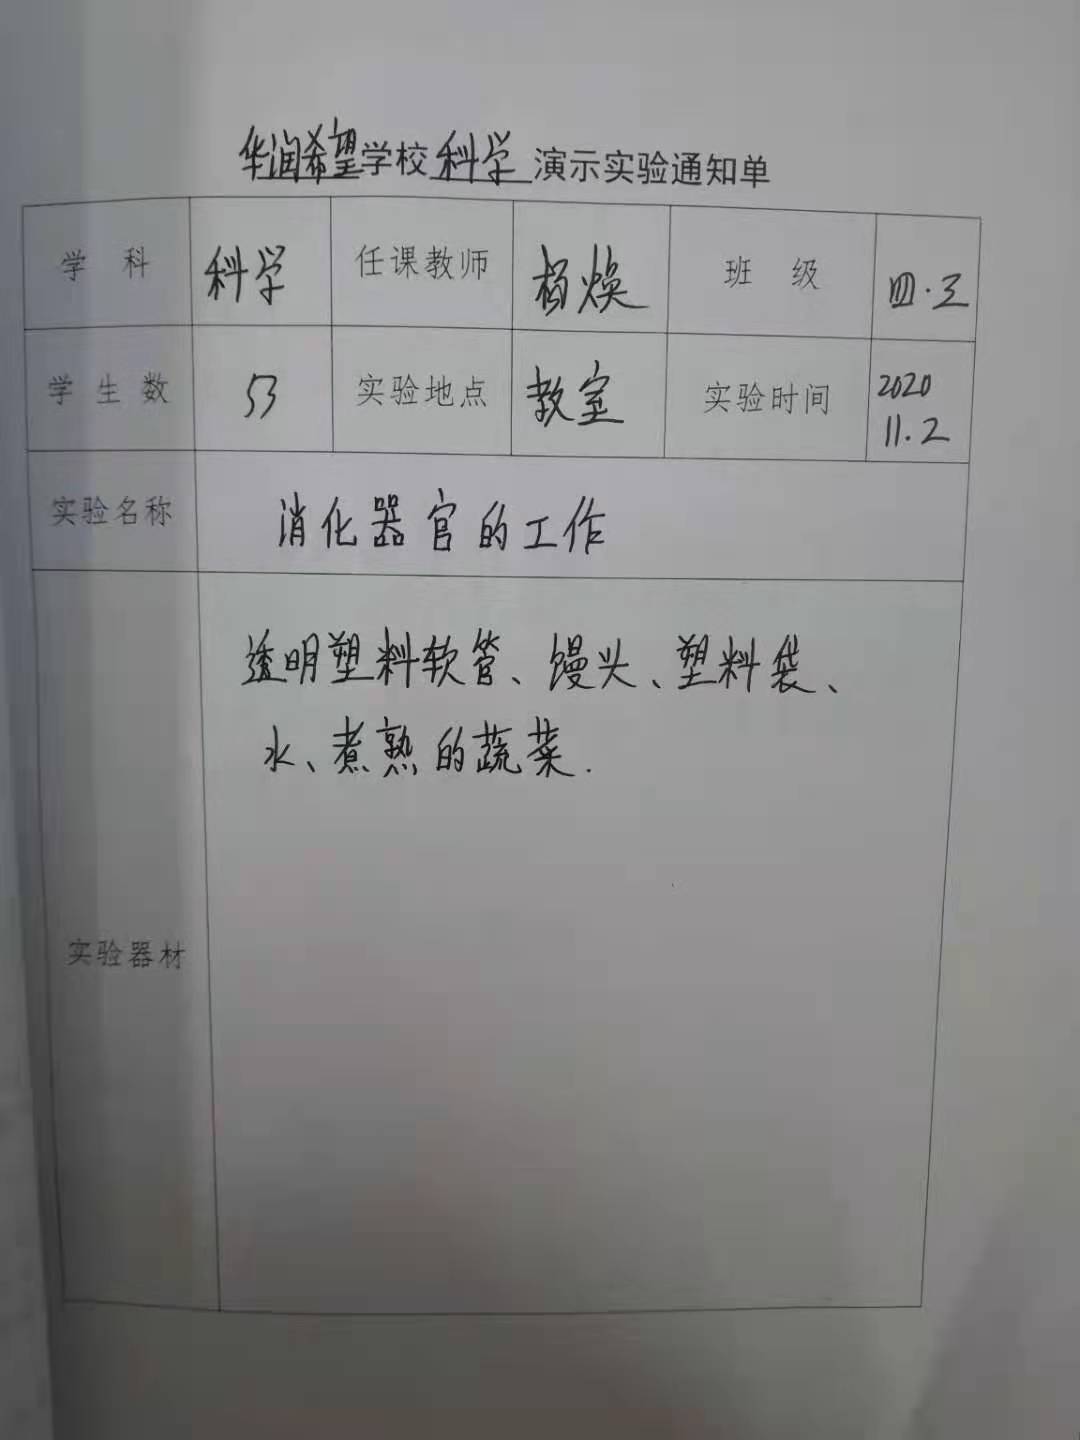 华润希望学校科学演示实验通知单
学 科 科学 任课教师 杨焕 班 级 四.三
学生数 53 实验地点 教室 实验时间 2020
11.2
实验名称 消化器官的工作
透明塑料软管、馒头、塑料袋、
水、煮熟的蔬菜.
实验器材